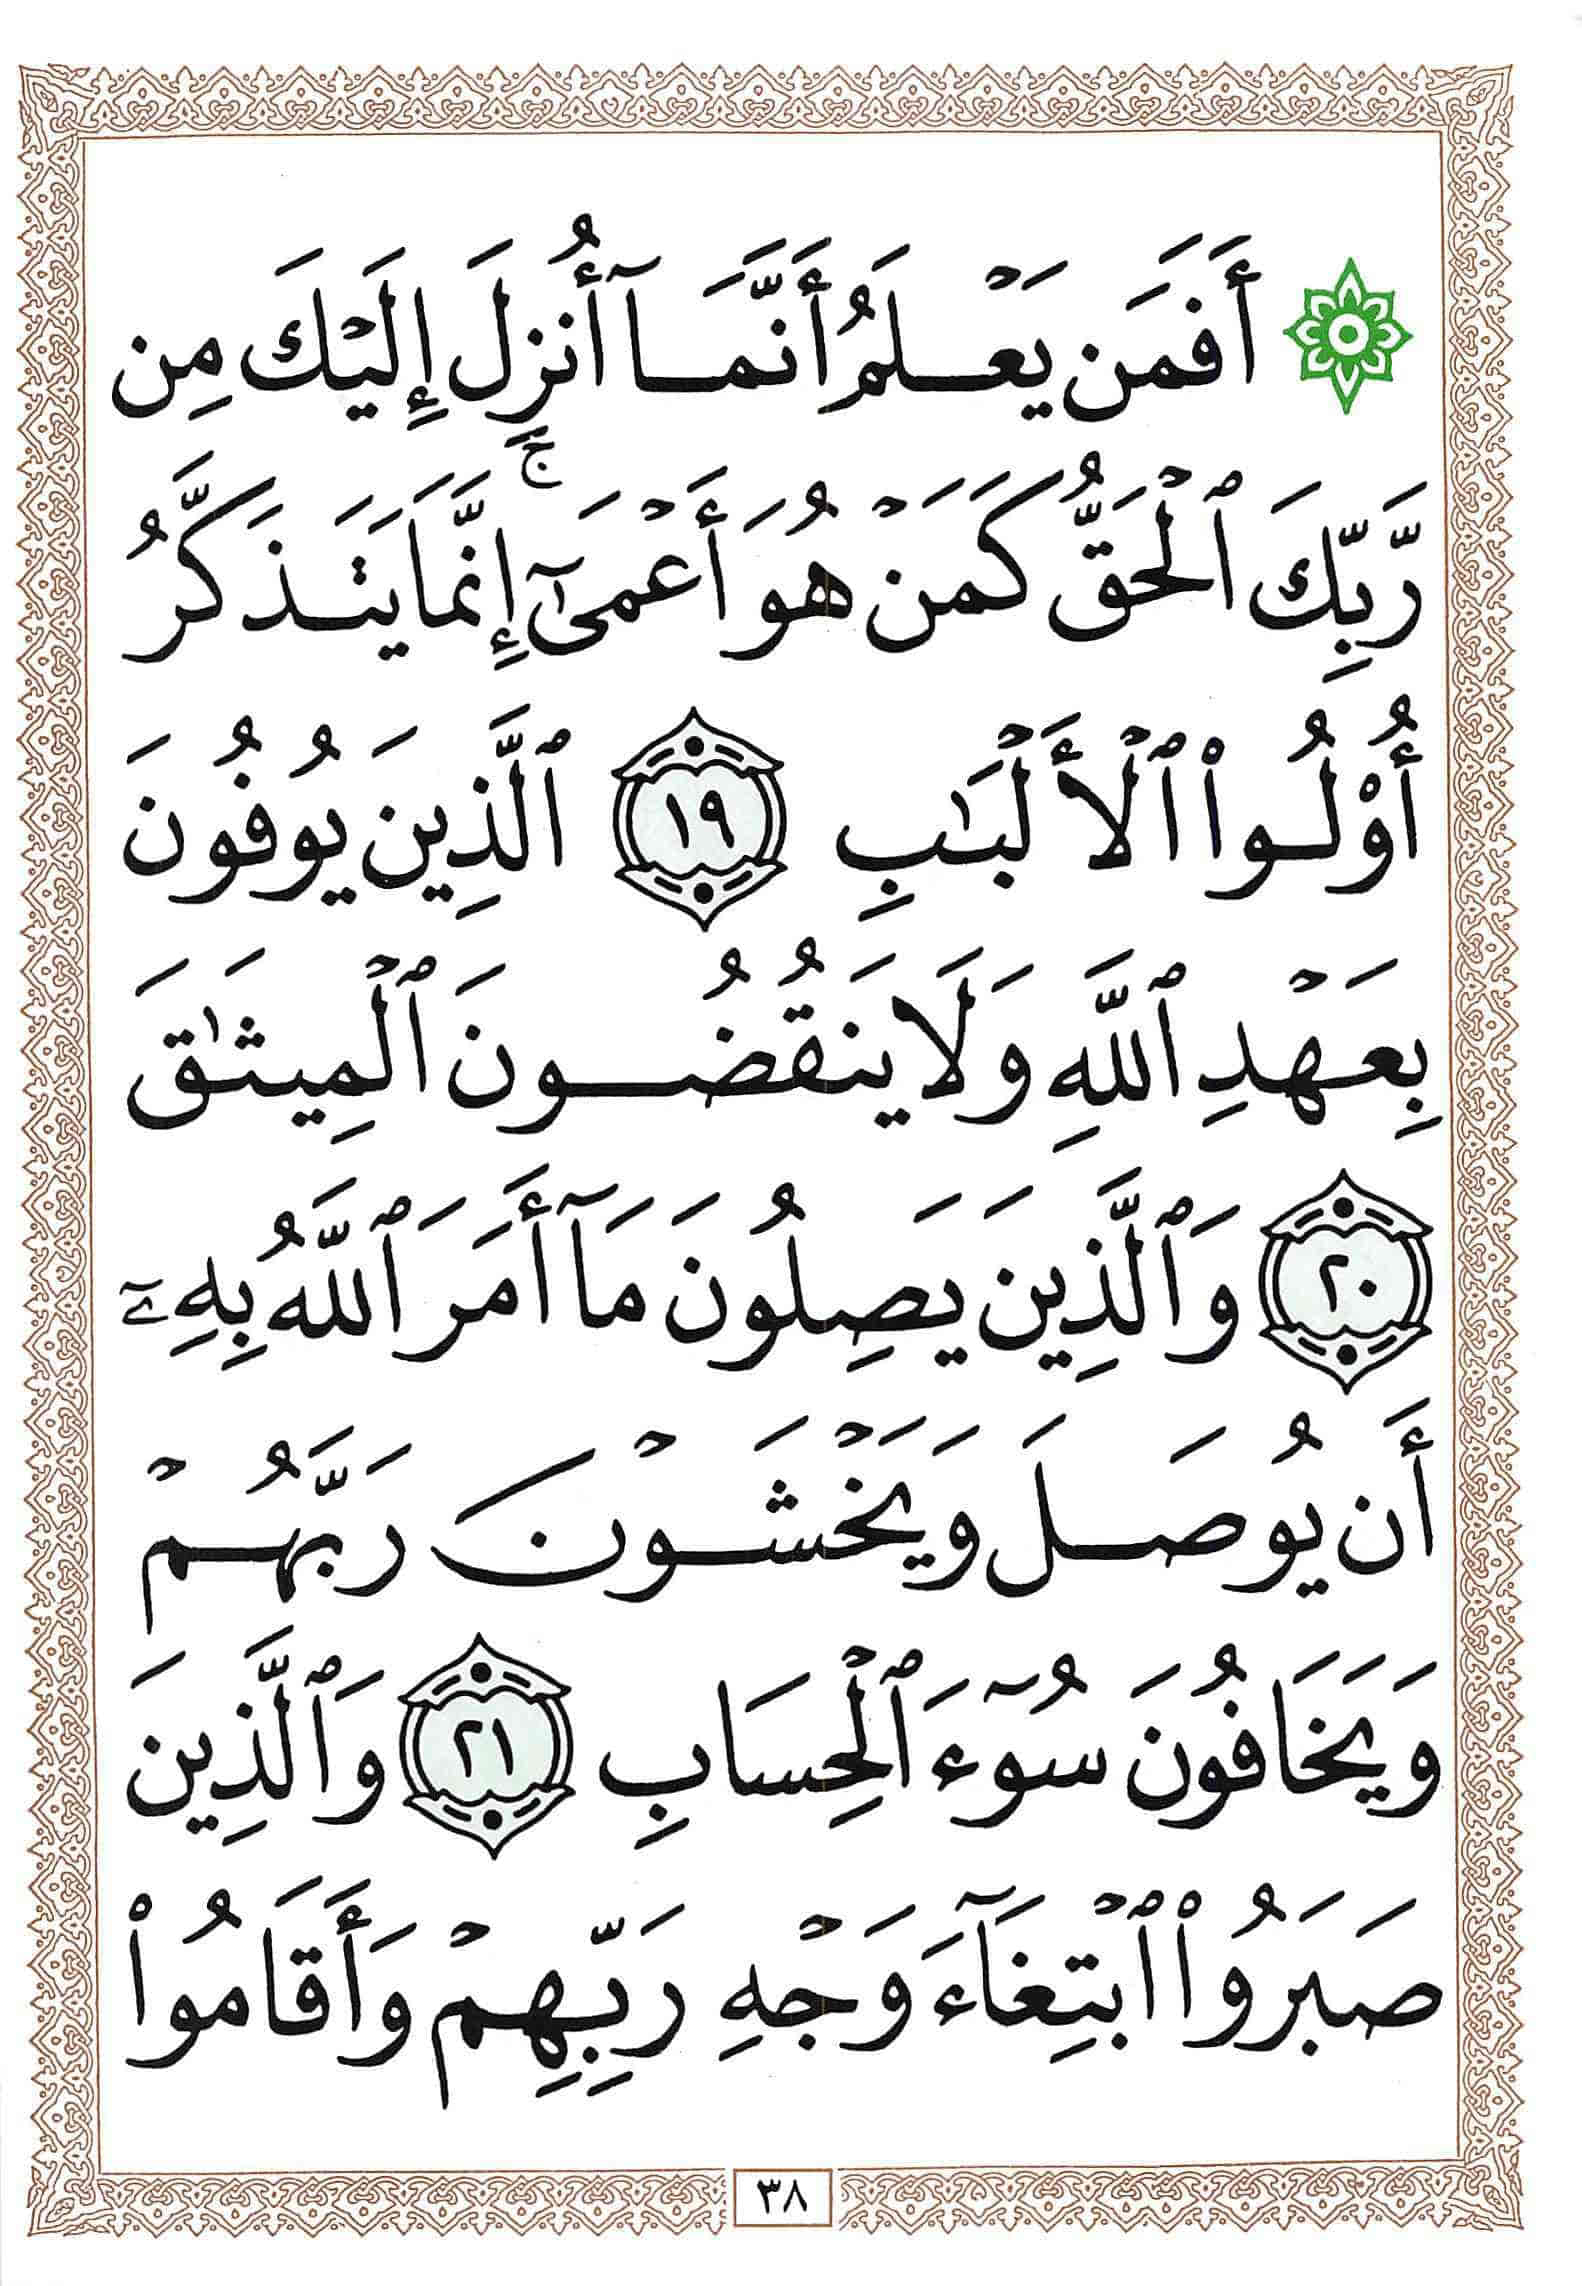 ۞ أَفَمَن يَعْلَمُ أَنَّمَآ أُنزِلَ إِلَيْكَ مِن
رَّبِّكَ ٱلْحَقُّ كَمَنْ هُوَ أَعْمَىٰٓ ۚ إِنَّمَا يَتَذَكَّرُ
أُو۟لُوا۟ ٱلْأَلْبَـٰبِ ١٩ ٱلَّذِينَ يُوفُونَ
بِعَهْدِ ٱللَّهِ وَلَا يَنقُضُونَ ٱلْمِيثَـٰقَ
٢٠ وَٱلَّذِينَ يَصِلُونَ مَآ أَمَرَ ٱللَّهُ بِهِۦٓ
أَن يُوصَلَ وَيَخْشَوْنَ رَبَّهُمْ
وَيَخَافُونَ سُوٓءَ ٱلْحِسَابِ ٢١ وَٱلَّذِينَ
صَبَرُوا۟ ٱبْتِغَآءَ وَجْهِ رَبِّهِمْ وَأَقَامُوا۟
٣٨